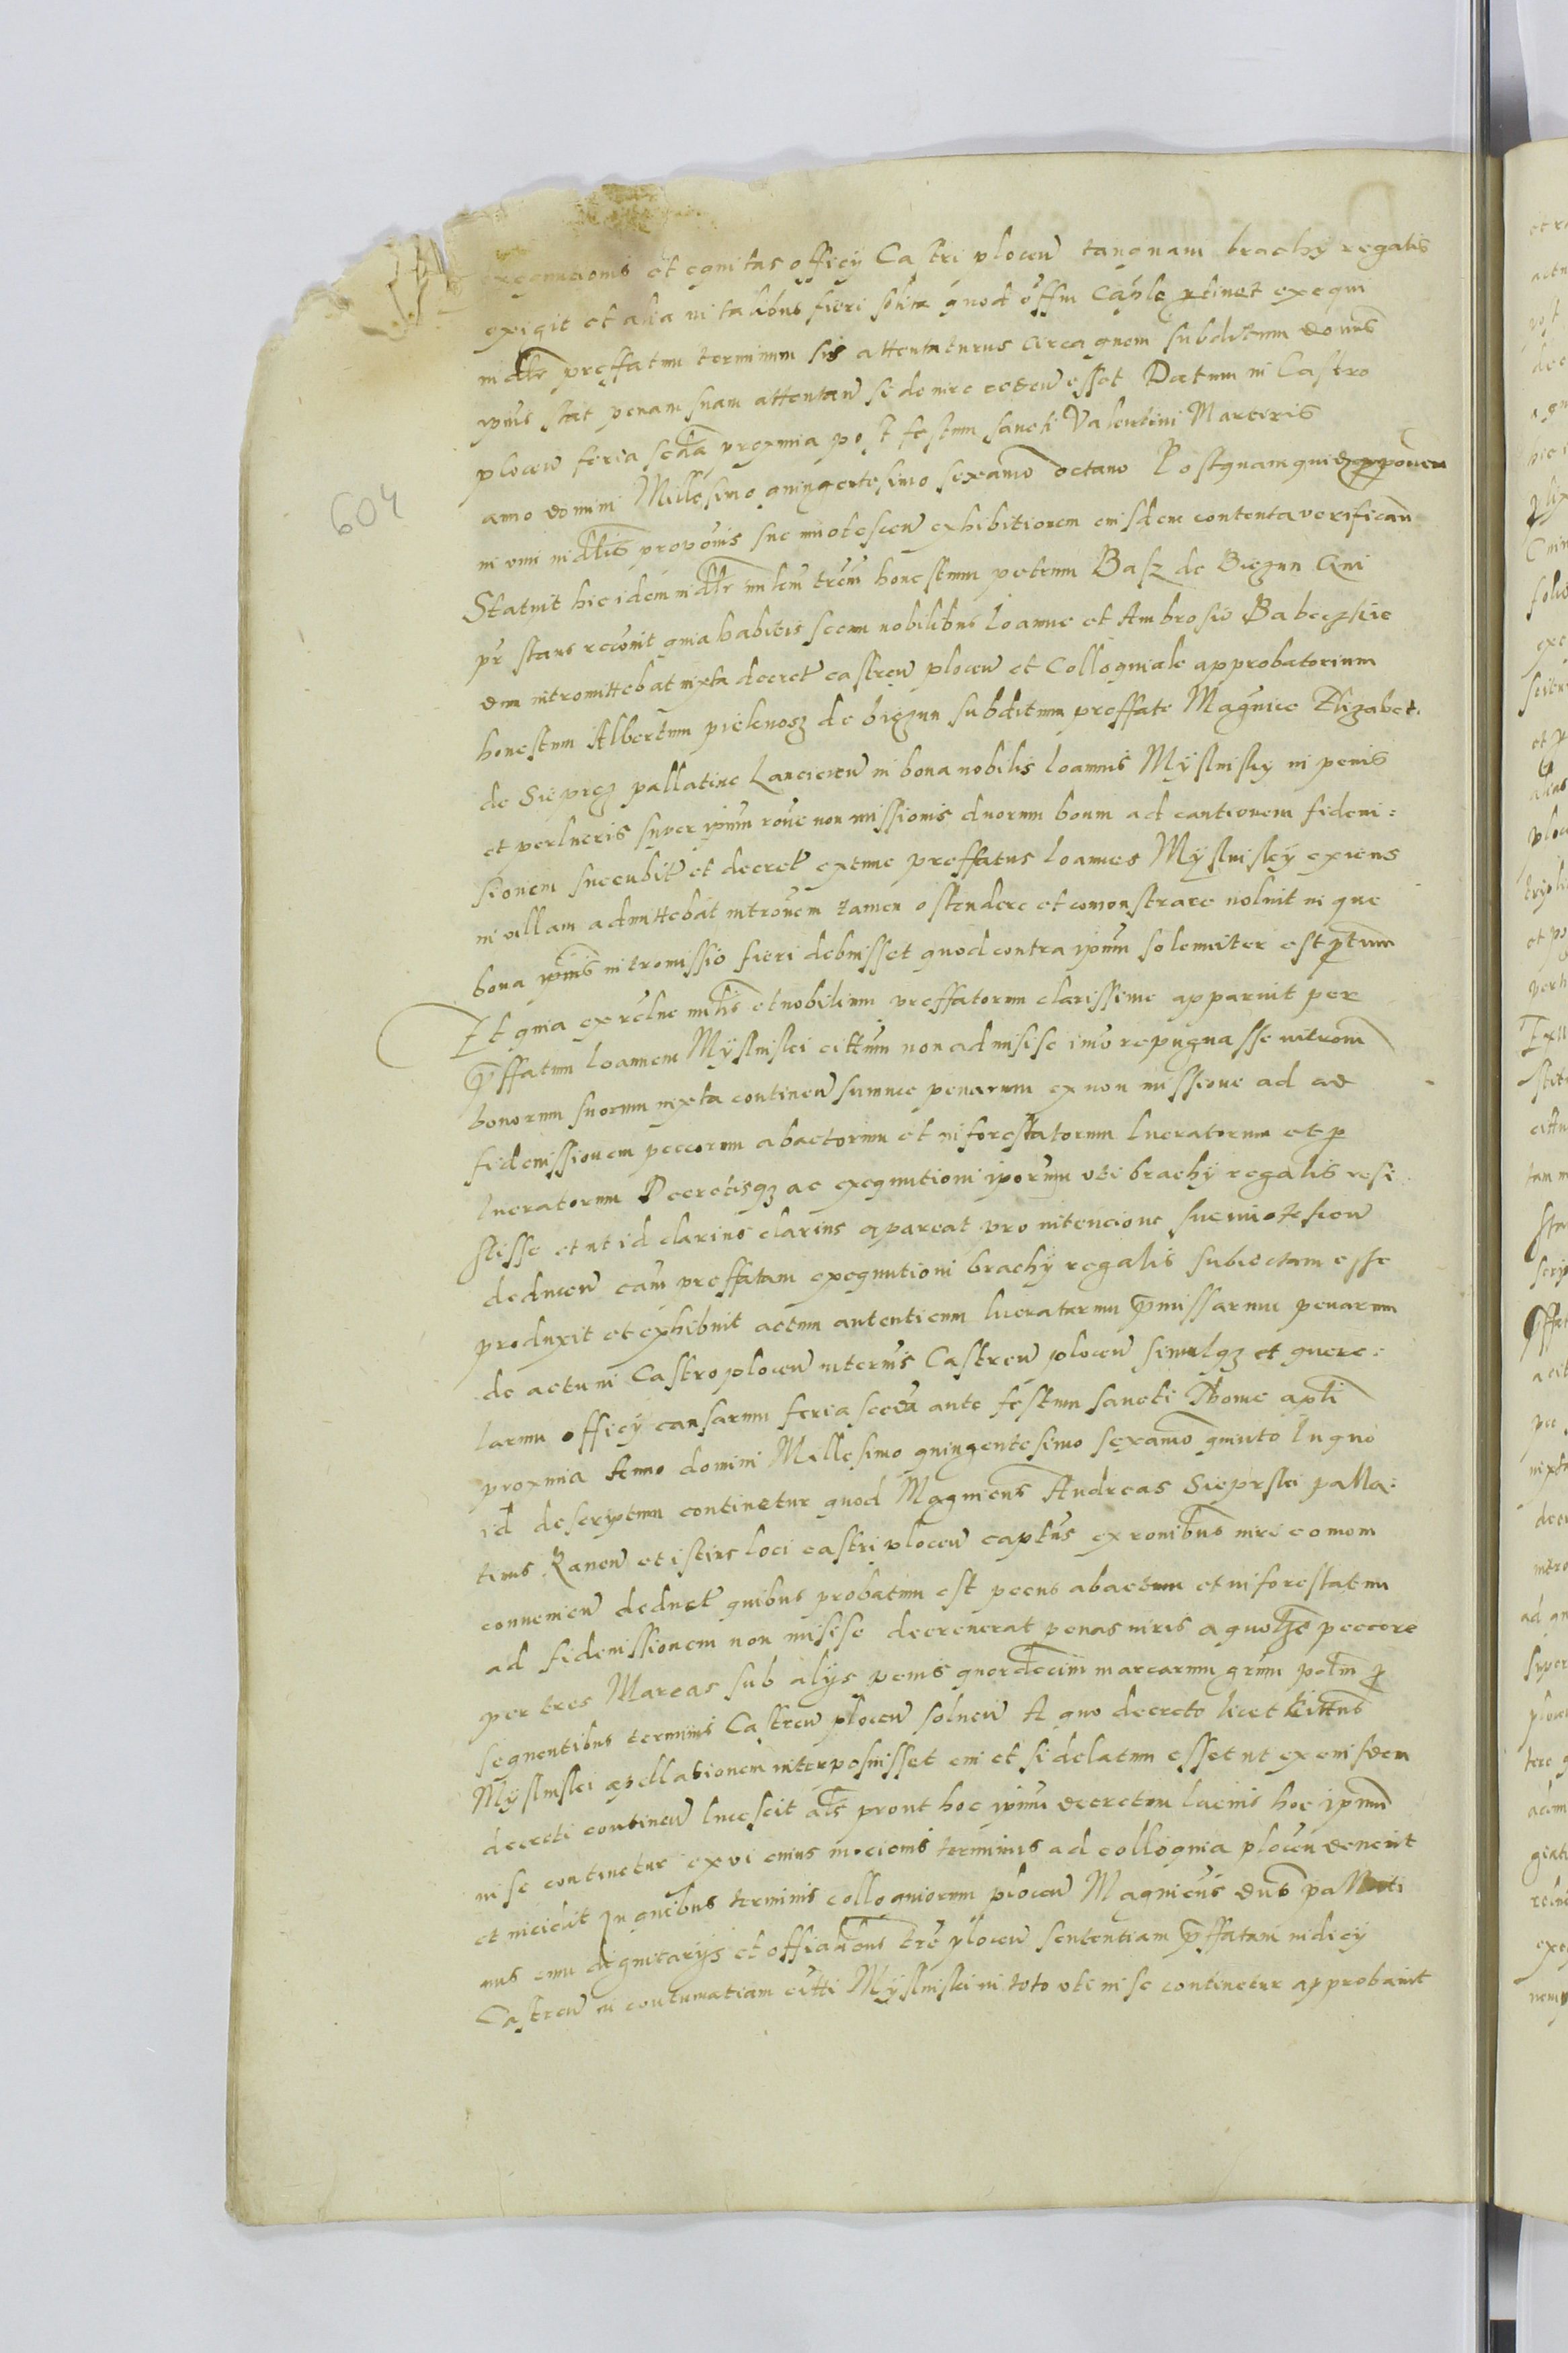 exequucionis et equitas officy Castri plocen tanquam brachy regalis
exigit et alia in talibus fieri solita quod offm Caple ptinet exequi
midtr preffatum terminum sis attentaturus circa quem subditum doming
ipius stat penam suam attentan si de iure ceden esset Datum in Castro
plocen feria scda proxima post festum sancti Valentini Marteris
604
anno domini Millesimo quingentesimo sexamo octauo Postquamquidem proponem
in vim midtlis propönis sue innotescen exhibitionem euisdem contenta verifican
Statuit hic idem midtr mlem trem honestum petrum Basz de Biezun Qui
pr stans recönit quia habitis secum nobilibus Joanne et Ambrosio Babeczskie
dem intromittebat iuxta decret castren plocen et Colloquiale approbatorium
honestum Albertum pielenosz de biezun subditum preffate Magnice Elizabet
de Sieprcz pallatine Lancicien in bona nobilis Joannis Myslinsky in penis
et perlucris super ipium röne non missionis duorum boum ad cautionem fideiu=
sionem succubit et decret extunc preffatus Joannes Myslinsky exiens
in villam admittebat introuem tamen ostendere et comonstrare noluit in que
bona ipius intromissio fieri debuisset quod contra ipium solemniter est ptum
Et quia ex relne mlis et nobilium preffatorum clarissime apparuit per
pffatum Joannem Myslinski cittum non admisise imo repugnasse introm
bonorum suorum iuxta continen summe penarum ex non missione ad ad
fideiussionem peccorum abactorum et inforestatorum lucratorum et p
lucratorum Decretisqz ac exequutioni iporum vti brachy regalis resi
stisse et ut id clarius clarius apareat pro intencione sue innotescen
deducen eam preffatam exequutioni brachy regalis subiectam esse
produxit et exhibuit actum autenticum lucratarum pmissarum penarum
de actu in Castro plocen interis Castren plocen simulqz et quere=
larum officy causarum feria secda ante festum sancti Thome apli
proxima Anno domini Millesimo quingentesimo sexamo quinto In quo
id descriptum continetur quod Magnicus Andreas Sieprski palla=
tinus Rauen et istius loci castri plocen captus ex ronibus iuri comom
conuenien deduct quibus probatum est pecus abactum et inforestatum
ad fideiussionem non misise decreuerat penas iuris a quolibe peccore
per tres Marcas sub alys penis quordecim marcarum grum potm p
sequentibus terminis Castren plocen soluen A quo decreto licet Cittus
Myslinski apellationem interposuisset eni et si delatum esset ut ex euisdem
decreti continen lucescit als prout hoc ipium decretum lacius hoc ipium
in se continetur ex vi cuius mocionis terminus ad colloquia plocen deuenit
et incidit In quibus terminis colloquiorum plocen Magnicus dns pallati
nus cum dignitarys et officialibus tre plocen sententiam pffatam iudicy
Castren in contumatiam citti Myslinski in toto vti in se continetur approbauit